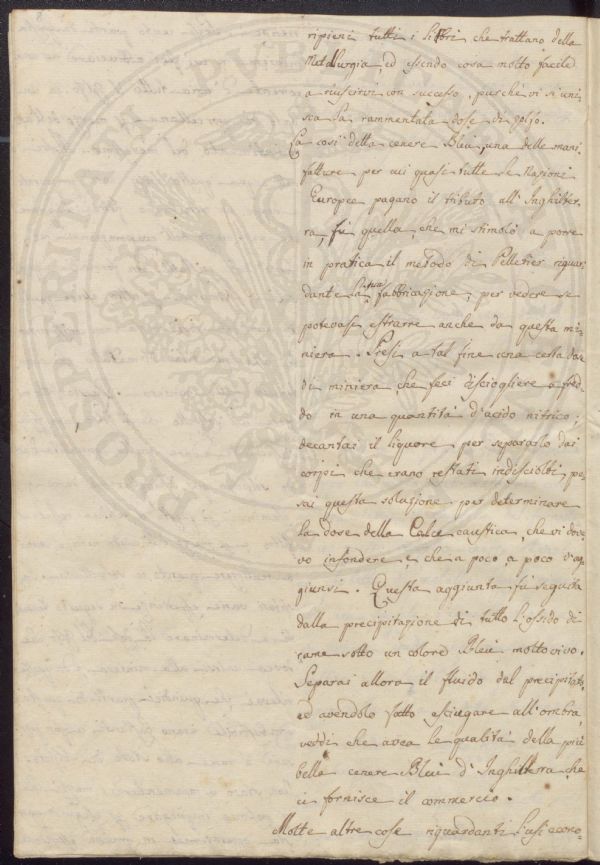 ripieni tutti i Libbri che trattano della
Metallurgia, ed essendo cosa molto facile
a riuscirvi con successo, purchè vi si uni-
sca la rammentata dose di zolfo.
La così detta cenere Bleu, una delle mani-
fatture per cui quasi tutte le Nazioni
Europee pagano il tributo all'Inghilter-
ra, fù quella, che mi stimolò a porre
in pratica il metodo di Pelletier riguar-
dante la sua fabbricazione, per vedere se
potevasi estrarre anche da questa mi-
niera. Presi a tal fine una certa da
di miniera, che feci disciogliere a fred-
do in una quantità d'acido nitrico;
decantai il liquore per separarlo dai
corpi che erano restati indisciolti, pe-
sai questa soluzione per determinare
la dose della Calce caustica, che vi dove-
vo infondere e che a poco, a poco v'ag-
giunsi. Questa aggiunta fù seguita
dalla precipitazione di tutto l'ossido di
rame sotto un colore Bleu molto vivo.
Separai allora il fluido dal precipitato,
ed avendolo fatto asciugare all'ombra,
veddi che avea le qualità della più
bella cenere Bleu d'Inghilterra che
ci fornisce il commercio.
Molte altre cose riguardanti l'usi econo-
PROSPERITATI PUBLICAE